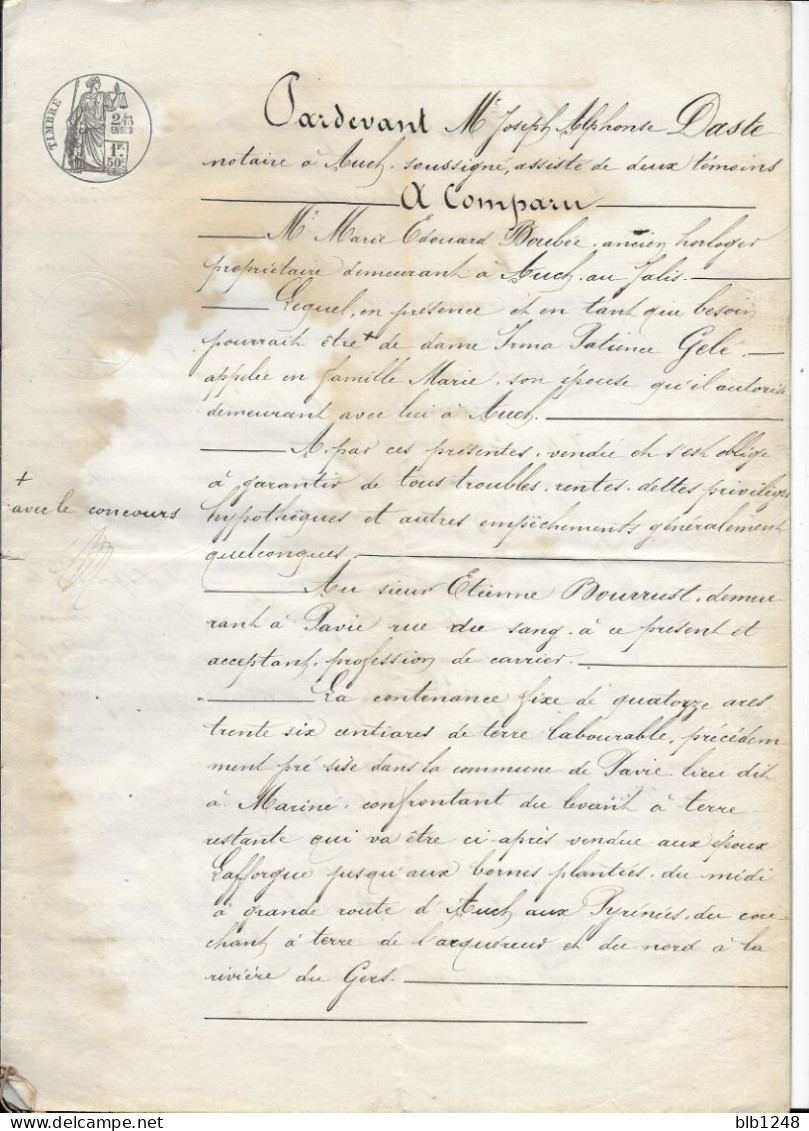 TIMBRE
2/10
EN SUS
1F.
50C.
Pardevant Me Joseph Alphonse Daste
notaire à Auch, soussigné, assisté de deux témoins
A Comparu
Mr Marie Edouard Boubée, ancien horloger
propriétaire demeurant à Auch, au Jalis.
Lequel, en présence et en tant que besoin
pourrait être + de dame Irma Patience Gelé,
appelée en famille Marie, son épouse qu'il autorise
demeurant avec lui à Auch.
A, par ces présentes, vendu et s'est obligé
à garantir de tous troubles, rentes, dettes, privilèges
hypothèques et autres empêchements généralement
quelconques,
+
avec le concours
Au sieur Etienne Bourrust, demeu
rant à Pavie rue du sang, à ce présent et
acceptant, profession de carrier.
La contenance fixe de quatorze ares
trente six centiares de terre labourable, précédem-
ment pré sise dans la commune de Pavie, lieu dit
à Mariné, confrontant du levant à terre
restante qui va être ci-après vendue aux époux
Lafforgue jusqu'aux bornes plantées, du midi
à grande route d'Auch aux Pyrénées, du cou-
chant à terre de l'acquéreur et du nord à la
rivière du Gers.
blb1248